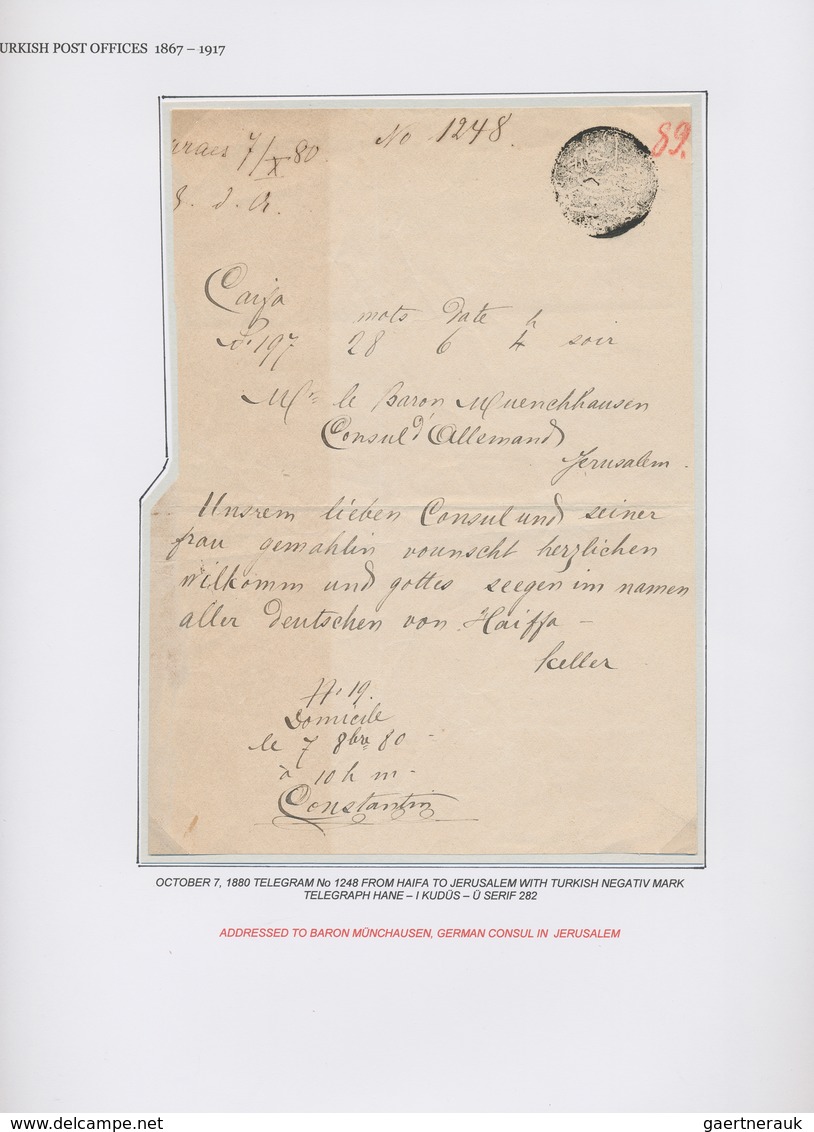 URKISH POST OFFICES 1867 – 1917
No 1248. 89.
7/X 80.
d. A.
Caifa
mots date h
No. 197 28 6 4 soir
Mr le Baron Muenchhausen
Consul d'Allemand
Jerusalem.
Unsrem lieben Consul und seiner
frau gemahlin vounscht herzlichen
wilkomm und gottes seegen im namen
aller deutschen von Haiffa –
Keller
No. 19.
Domicile
le 7 8bre 80 -
à 10 h m -
Constantin
OCTOBER 7, 1880 TELEGRAM No 1248 FROM HAIFA TO JERUSALEM WITH TURKISH NEGATIV MARK
TELEGRAPH HANE – I KUDÜS – Ü SERIF 282
ADDRESSED TO BARON MÜNCHAUSEN, GERMAN CONSUL IN JERUSALEM
www.delcampe.net gaertnerauk